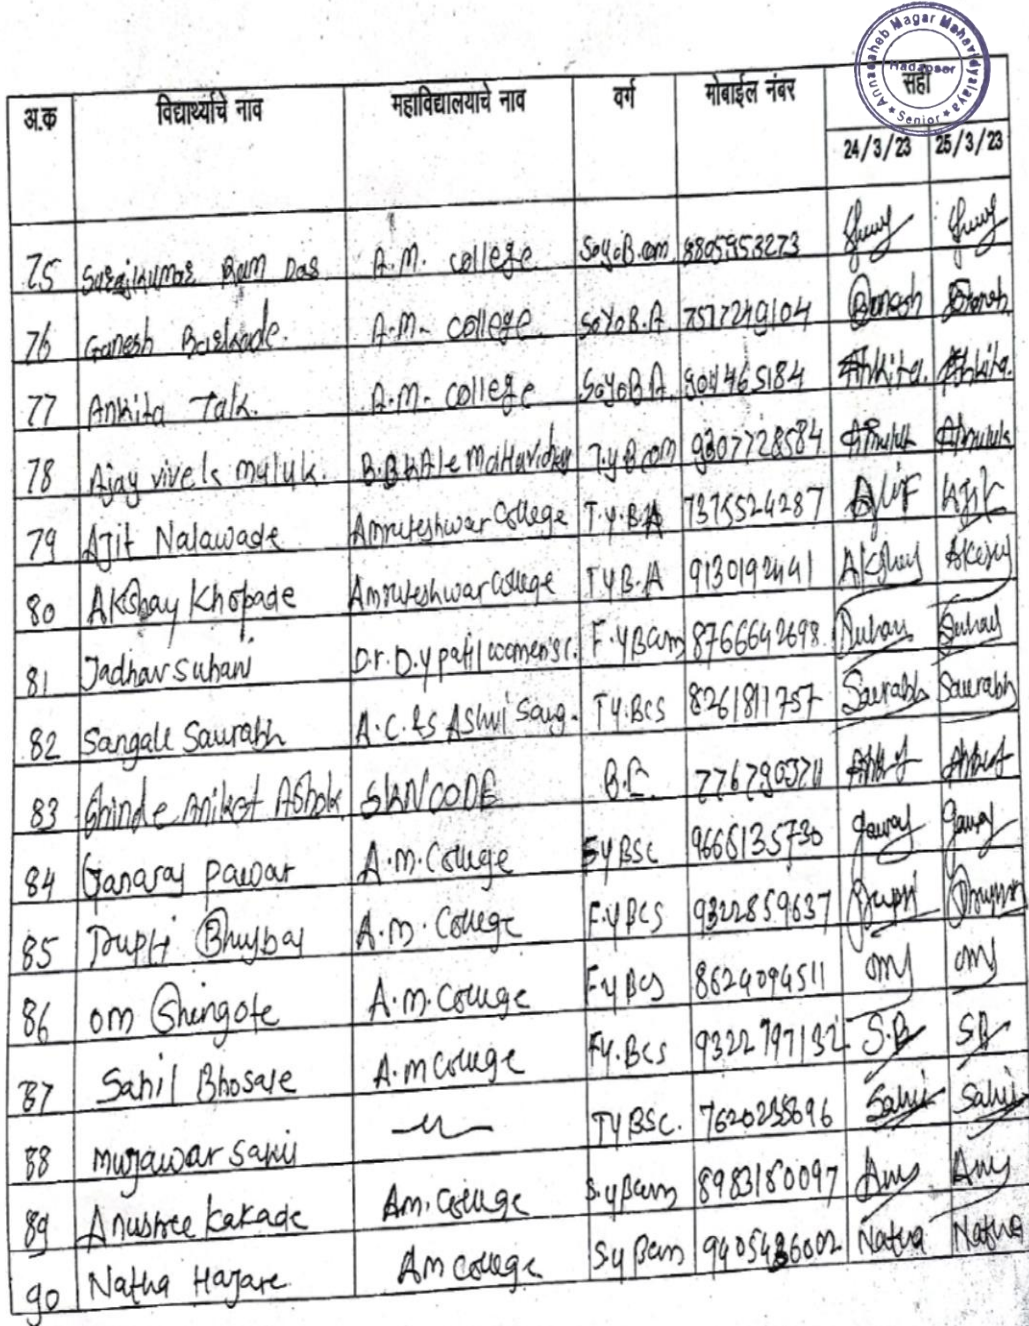 Annasaheb Magar Mahavidyalaya
Hadapser
★ Senior ★
अ.क विद्यार्थ्याचे नाव महाविद्यालयाचे नाव वर्ग मोबाईल नंबर सही
24/3/23 25/3/23
75 Surajkumar Ram Das A.M. college S.Y.B.com 8805953273
76 Ganesh A.M. college S.Y.B.A 7517249104 Ganesh Ganesh
77 Ankita Talk. A.M. college S.Y.B.A. 904465184 Ankita. Ankita.
78 Ajay vivek muluk. T.y.B.com 9307728584
79 Ajit Nalawade Amruteshwar College T.Y.B.A 7375524287 Ajit Ajit
80 Akshay Khopade Amruteshwar College T.Y.B.A 9130192441 Akshay Akshay
81 Jadhav suhani Dr. D.y patil women's c. F.yBcom 8766642698
82 Sangale Saurabh A.C. &S Ashvi Saug. T.Y.BCS 8261811757 Saurabh Saurabh
83 Shinde Aniket Ashok SKNCOE B.E 7767903711
84 Ganaraj pawar A.m. College SYBSC 9665135730
85 Trupti Bhujbal A.m. College F.Y BCS 9322859637
86 om Ghingote A.m. College F.y BCS 8624094511 om om
87 Sahil Bhosale A.m College F.Y. BCS 9322797132 S.B S.B
88 mujawar sahil —〃— TYBSC. 7620258696 Sahil Sahil
89 Anushree Kakade Am. College S.yBcom 8983180097 Anu Anu
90 Natha Hajare Am college S.y Bcom 9405436002 Natha Natha